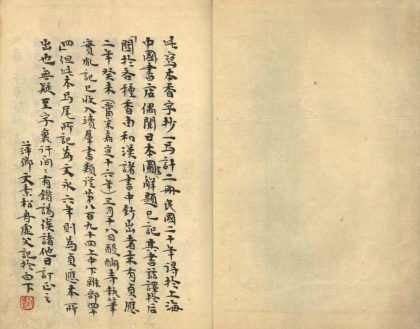 此寫本香字抄一馬許二冊民國二十年得於上海
中國書店偶閱日本國解題已記其書茲譯於后
「關於各種香由和漢諸書中鈔出者末有貞應
二年癸未(當宋嘉定十六年)三月十八日醍醐寺執筆
實
記已收入續羣書類從第八百九十四上中下雜部四十
四但此本馬尾所記為文永六年則為貞應本所
出也無疑至字裏行間間有錯譌俟諸他日訂正之
萍鄉文素松舟虛父記於白下